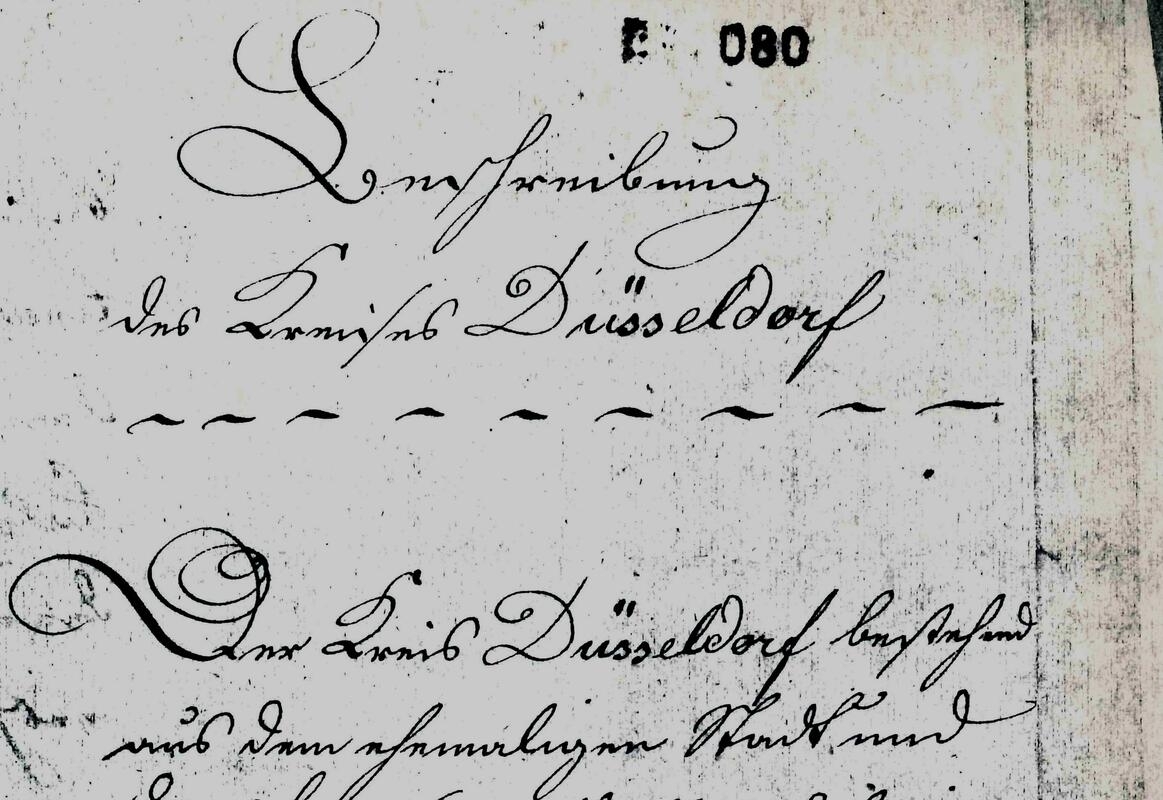 E 080
Beschreibung
des Kreises Düsseldorf
Der Kreis Düsseldorf bestehend
aus dem ehemaligen Stadt und